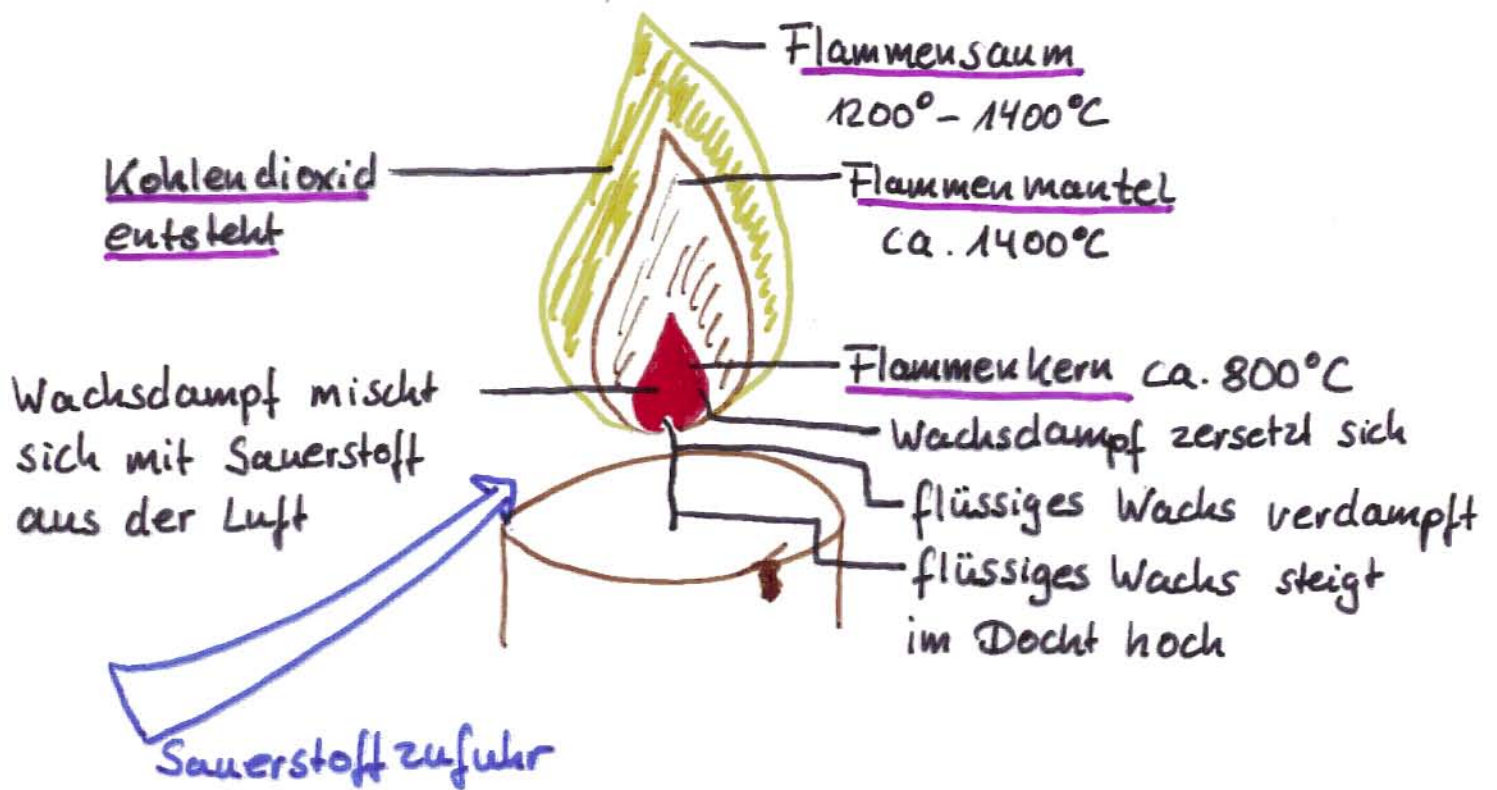 Flammensaum
1200° - 1400°C
Kohlendioxid
entsteht
Flammenmantel
ca. 1400°C
Flammenkern ca. 800°C
Wachsdampf mischt
sich mit Sauerstoff
aus der Luft
Wachsdampf zersetzt sich
flüssiges Wachs verdampft
flüssiges Wachs steigt
im Docht hoch
Sauerstoffzufuhr